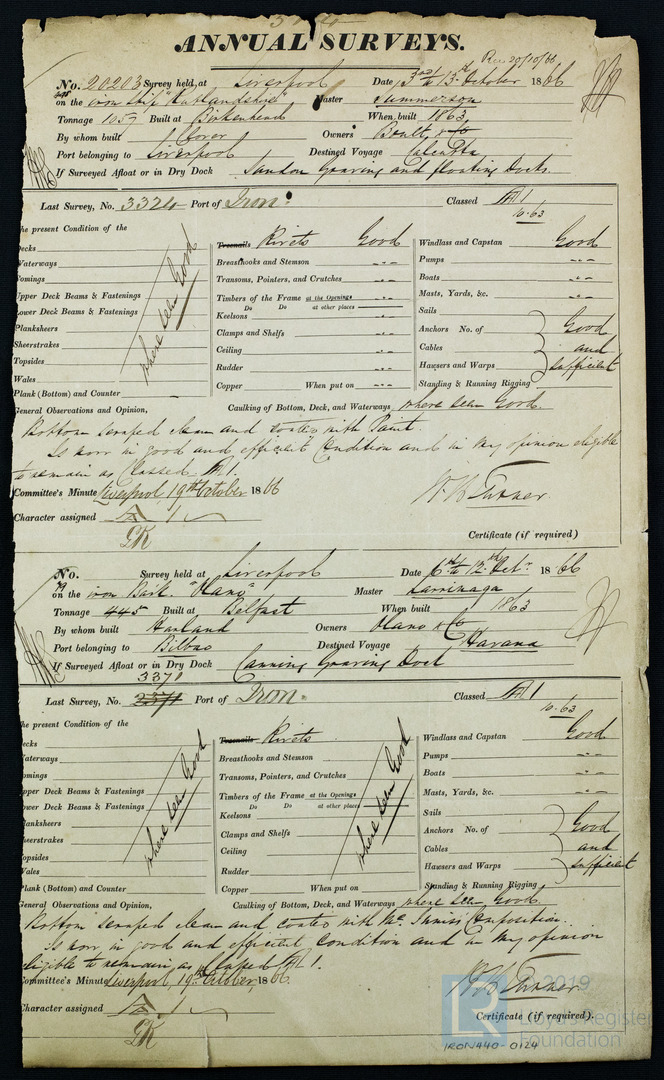 ANNUAL SURVEYS.
Rec 20/10/66
No. 20203 Survey held at Liverpool Date 3rd to 13th October 1866
on the iron Ship "Rutlandshire" Master Summerson
Tonnage 1057 Built at Birkenhead When built 1863
By whom built Clover Owners Boult, & Co
Port belonging to Liverpool Destined Voyage Calcutta
If Surveyed Afloat or in Dry Dock Sandon Graving and floating Docks
Last Survey, No. 3324 Port of Iron. Classed A 1
10.63
he present Condition of the
Decks
Waterways
omings
Upper Deck Beams & Fastenings
ower Deck Beams & Fastenings
Planksheers
Sheerstrakes
Topsides
Wales
Plank (Bottom) and Counter
where seen Good
Treenails Rivets Good
Breasthooks and Stemson "
Transoms, Pointers, and Crutches "
Timbers of the Frame at the Openings "
Do Do at other places
Keelsons "
Clamps and Shelfs "
Ceiling "
Rudder "
Copper When put on "
Windlass and Capstan Good
Pumps "
Boats "
Masts, Yards, &c. "
Sails
Anchors No. of Good
Cables and
Hawsers and Warps sufficient
Standing & Running Rigging
General Observations and Opinion, Caulking of Bottom, Deck, and Waterways where seen Good.
Bottom scraped clean and coated with Paint.
Is now in good and efficient Condition and in my opinion eligible
to remain as Classed A 1.
Committee's Minute Liverpool, 19th October 1866
W. B. Turner
Character assigned A 1
Certificate (if required)
No. Survey held at Liverpool Date 6th to 12th Octr 1866
on the iron Bark "Olano" Master Larrinaga
Tonnage 445 Built at Belfast When built 1863
By whom built Harland Owners Olano & Co
Port belonging to Bilbao Destined Voyage Havana
If Surveyed Afloat or in Dry Dock Canning Graving Dock
3370
Last Survey, No. 2371 Port of Iron. Classed A 1
10.63
he present Condition of the
ecks
aterways
omings
pper Deck Beams & Fastenings
ower Deck Beams & Fastenings
anksheers
eerstrakes
opsides
ales
lank (Bottom) and Counter
where seen Good
Treenails Rivets
Breasthooks and Stemson
Transoms, Pointers, and Crutches
Timbers of the Frame at the Openings
Do Do at other places
Keelsons
Clamps and Shelfs
Ceiling
Rudder
Copper When put on
where seen Good
Windlass and Capstan Good
Pumps "
Boats "
Masts, Yards, &c. "
Sails
Anchors No. of Good
Cables and
Hawsers and Warps sufficient
Standing & Running Rigging
General Observations and Opinion, Caulking of Bottom, Deck, and Waterways where seen Good.
Bottom scraped clean and coated with Mc Inniss Composition.
Is now in good and efficient Condition and in my opinion
eligible to remain as Classed A 1.
ommittee's Minute Liverpool, 19th October, 1866.
W. B. Turner
Character assigned A 1
Certificate (if required).
LR
2019
Lloyd's Register
Foundation
IRON440-0124